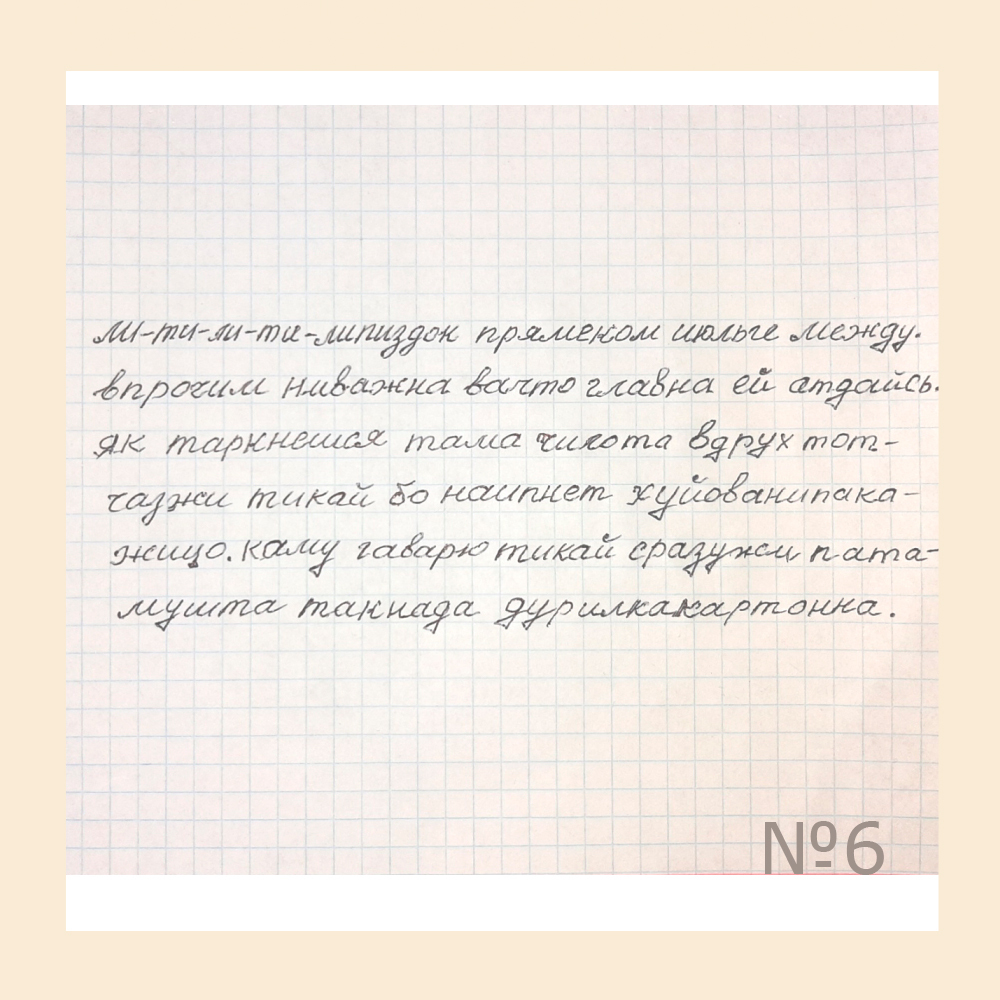 ли-ти-ли-ти-липиздок прямеком июльге между.
впрочим ниважна вачто главна ей атдайсь.
як таркнешся тама чилота вдрух тот-
чазжи тикай бо наипнет хуйованипака-
жицо. каму гаварю тикай сразужи пата-
мушта такнада дурилкакартонна.
№6